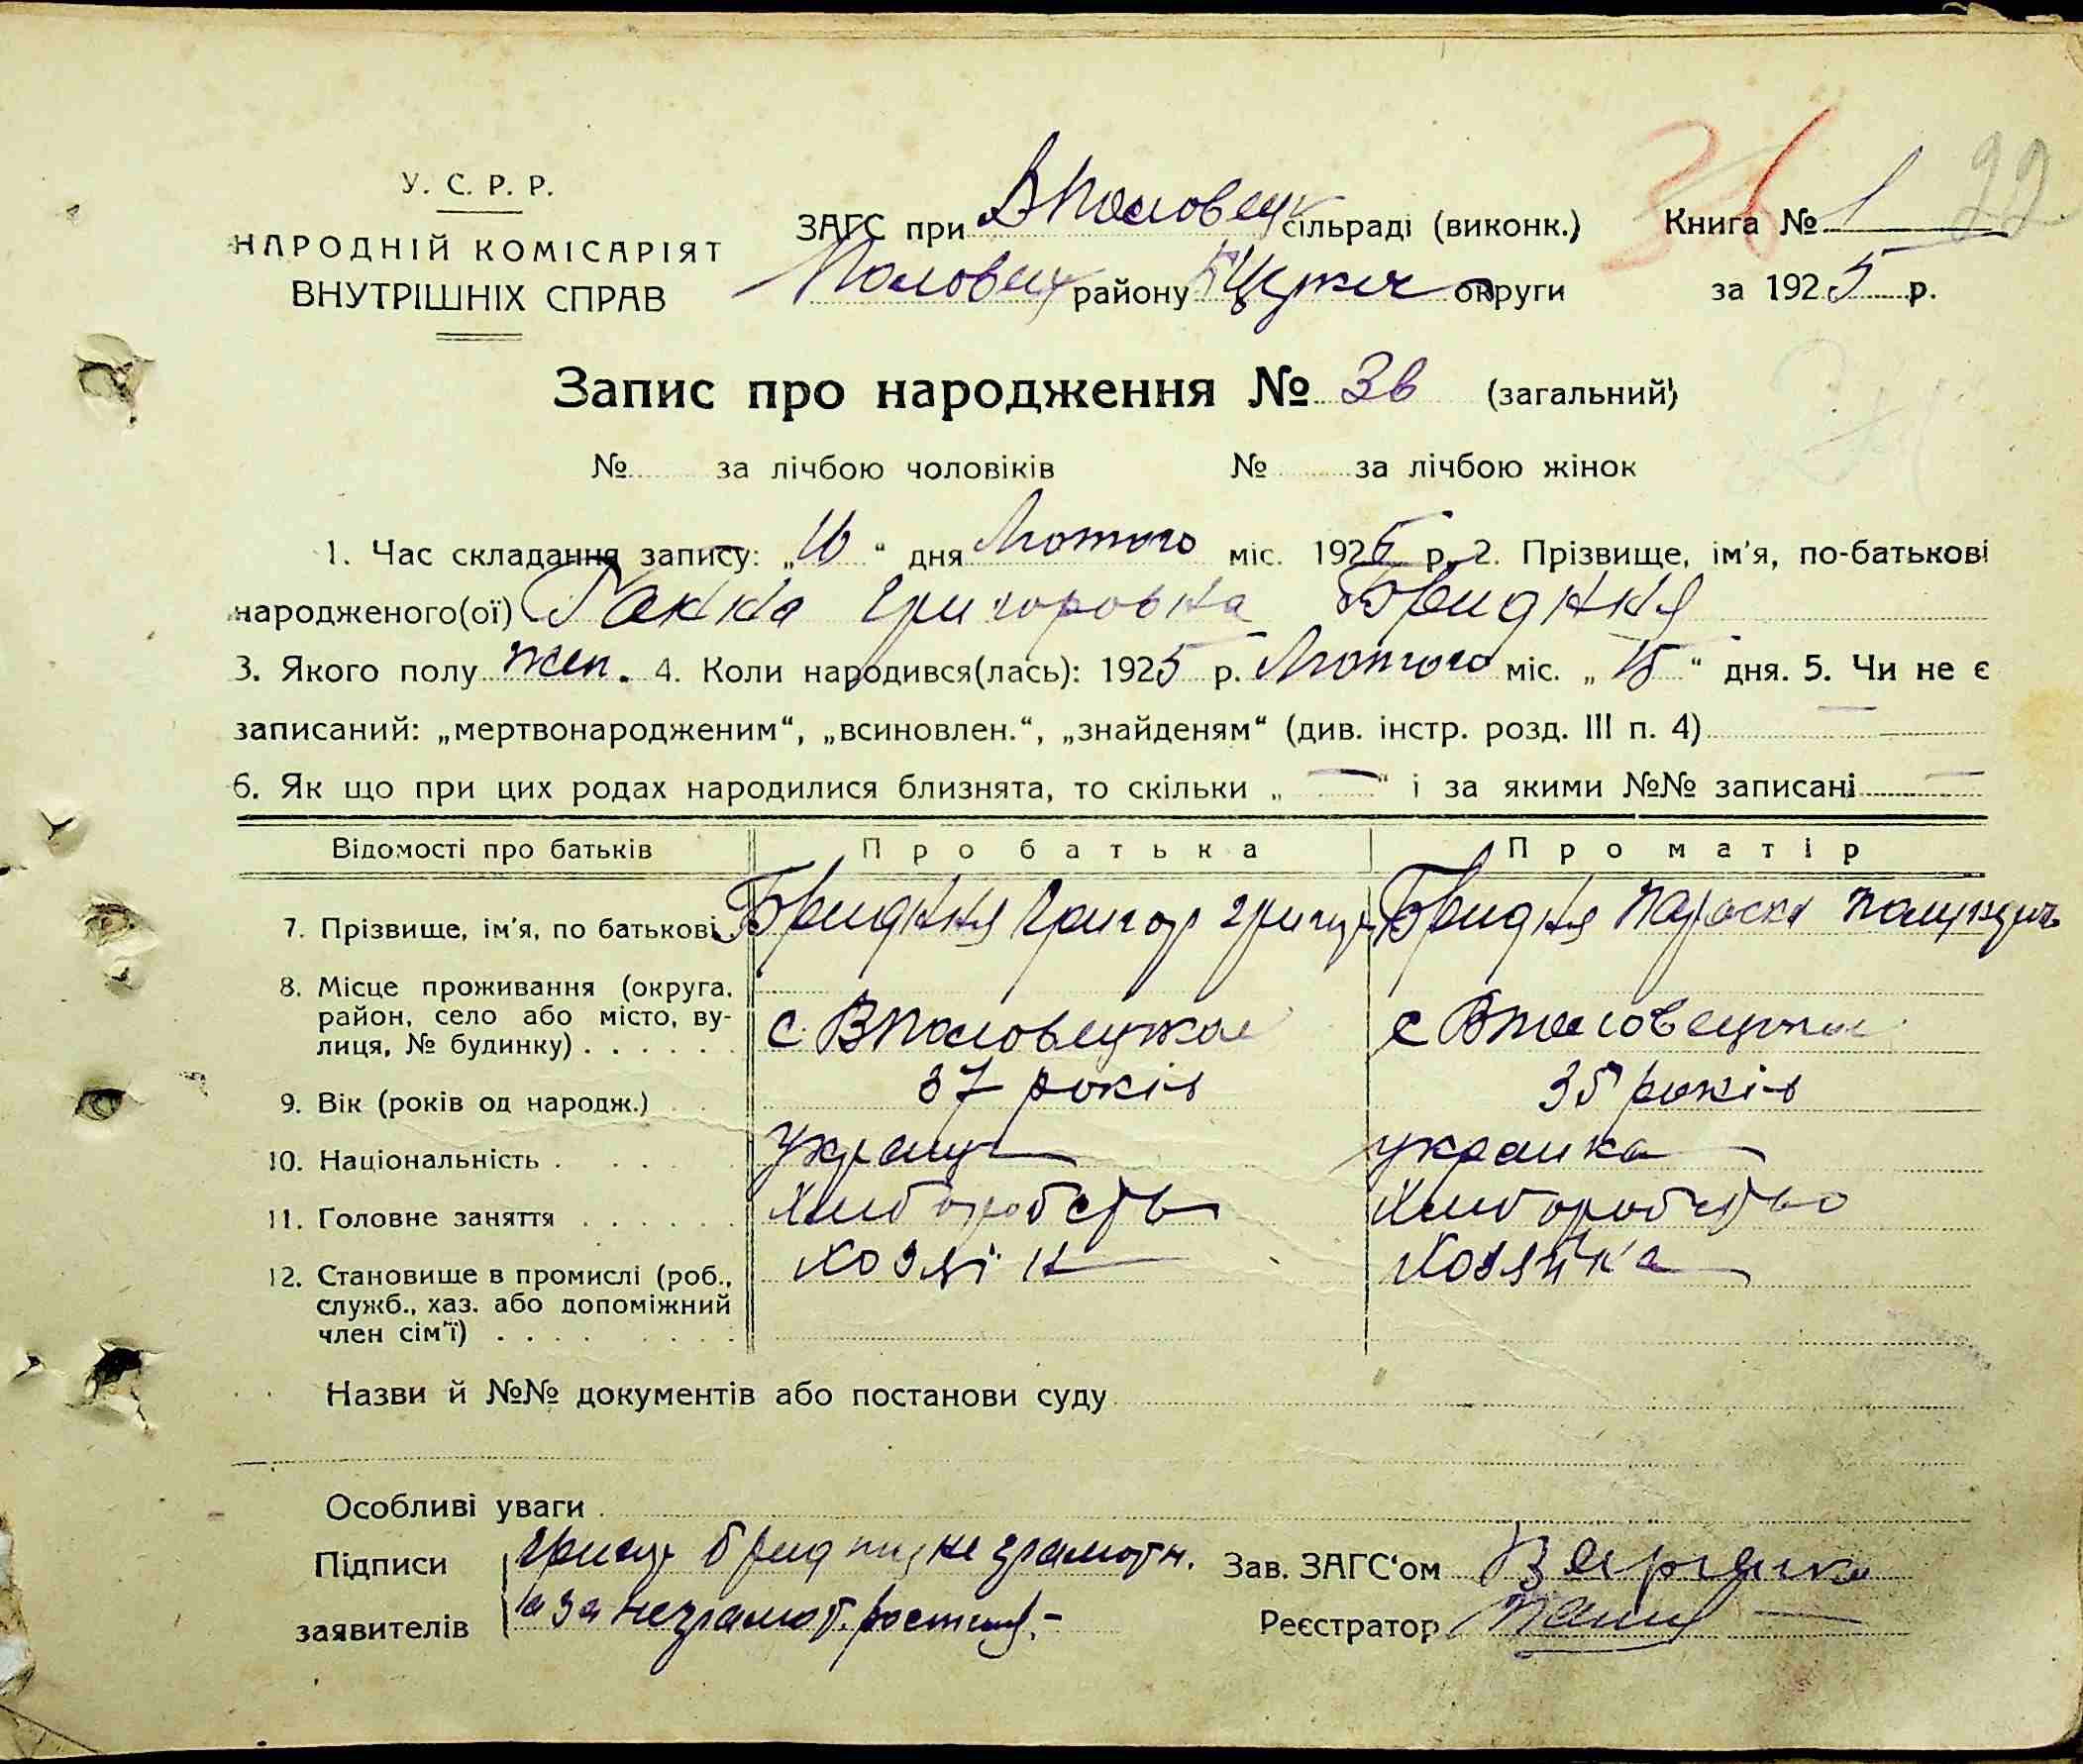 У. С. Р. Р.
НАРОДНІЙ КОМІСАРІЯТ
ВНУТРІШНІХ СПРАВ
ЗАГС при ВПоловецк сільраді (виконк.)
Половец району БЦерк округи
Книга № 1 22
за 1925 р.
36
Запис про народження № 36 (загальний)
№ за лічбою чоловіків № за лічбою жінок
1. Час складання запису: „16“ дня Лютого міс. 1925 р. 2. Прізвище, ім'я, по-батькові
народженого(ої) Ганна Григоровна Бридня
3. Якого полу жен. 4. Коли народився(лась): 1925 р. Лютого міс. „15“ дня. 5. Чи не є
записаний: „мертвонародженим“, „всиновлен.“, „знайденям“ (див. інстр. розд. III п. 4) —
6. Як що при цих родах народилися близнята, то скільки „—“ і за якими №№ записані —
Відомості про батьків Про батька Про матір
7. Прізвище, ім'я, по батькові Бридня Григор Бридня Параска
8. Місце проживання (округа, район, село або місто, ву-лиця, № будинку) с. ВПоловецкое с ВПоловецкое
9. Вік (років од народж.) 37 років 35 років
10. Національність украинец украинка
11. Головне заняття Хлиборобств Хлиборобство
12. Становище в промислі (роб., служб., хаз. або допоміжний член сім'ї) хозяїн Хозяйка
Назви й №№ документів або постанови суду
Особливі уваги
Підписи неграмотн. Зав. ЗАГС'ом
заявителів а за неграмот. Реєстратор